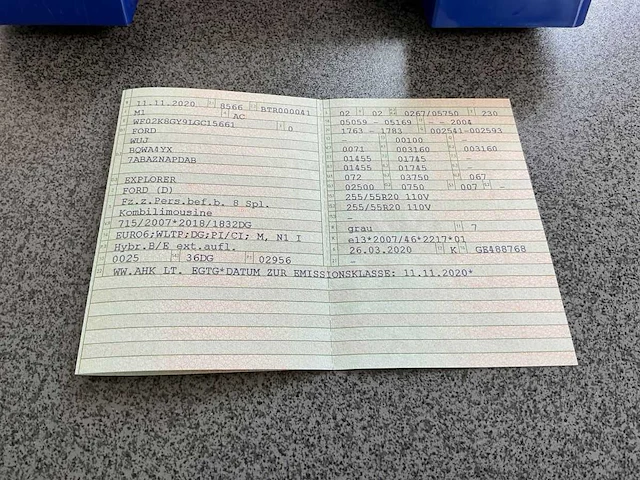 11.11.2020 8566 BTR000041
M1 AC
WF02K8GY91GC15661 0
FORD
WUJ
BQWA4YX
7ABAZNAPDAB
EXPLORER
FORD (D)
Fz.z.Pers.bef.b. 8 Spl.
Kombilimousine
715/2007*2018/1832DG
EURO6;WLTP;DG;PI/CI; M, N1 I
Hybr.B/E ext.aufl.
0025 36DG 02956
WW.AHK LT. EGTG*DATUM ZUR EMISSIONSKLASSE: 11.11.2020*
02 02 0267/05750 230
05059 - 05169 - - 2004
1763 - 1783 002541-002593
- 00100 -
0071 003160 003160
01455 01745 -
01455 01745 -
072 03750 067
02500 0750 007 -
255/55R20 110V
255/55R20 110V
-
grau 7
e13*2007/46*2217*01
26.03.2020 K GE488768
-